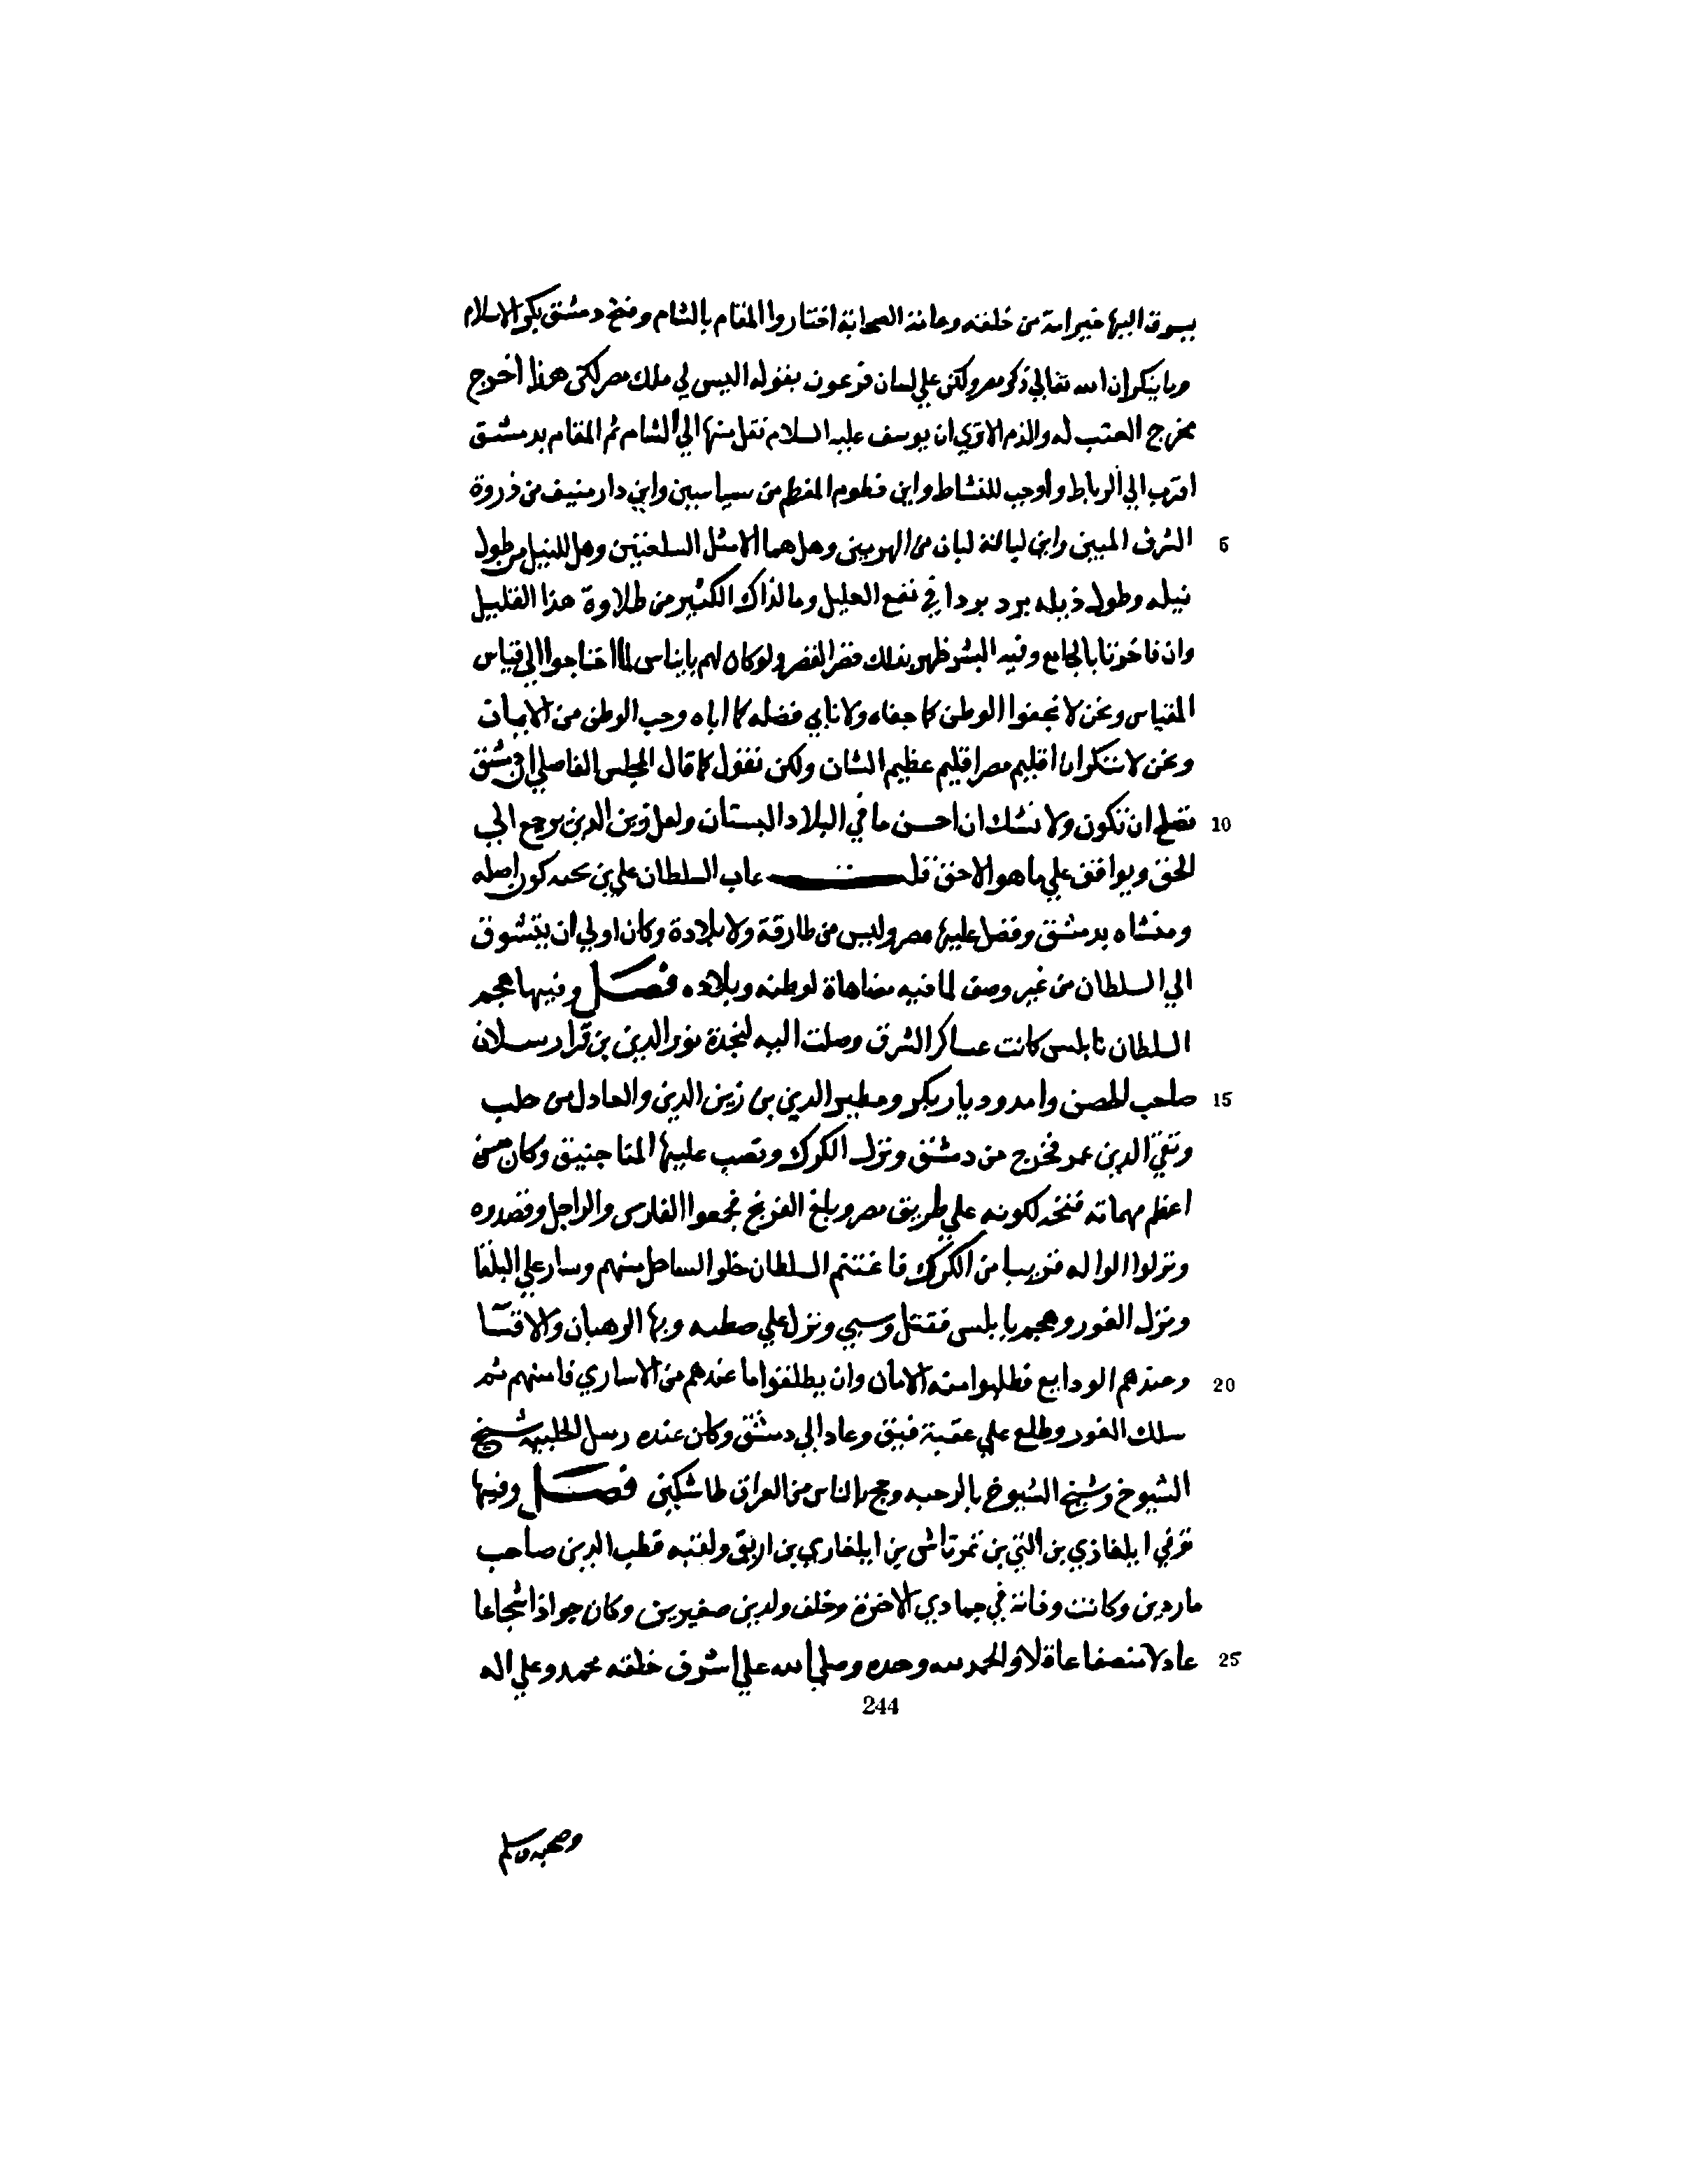 يسوق اليها خيرامة من خلقه وعامة الصحابة اختاروا المقام بالشام وفتح دمشق بكر الاسلام
وما ينكر ان الله تعالي ذكر مصر ولكن علي لسان فرعون بقوله اليس لي ملك مصر لكن هذا اخرج
مخرج العتب له والذم الا تري ان يوسف عليه السلام نقل منها الي الشام ثم المقام بدمشق
اقرب الي الرباط واوجب للنشاط واين قطوم المقطم من سياسيين واين دار منيف من ذروة
5 الشرف المبين واين لبانة لبان من الهرمين وهل هما الا مثل السلعتين وهل للنيل من طول
نيله وطول ذيله برد بردا في نقع الغليل وما لذاك الكثير من طلاوة هذا القليل
وان فاخرتنا بالجامع وفيه النسر ظهر بذلك قصر القصر ولو كان لهم باناس لما احتاجوا الي قياس
المقياس ونحن لا نجفوا الوطن كما جفاه ولا نابي فضله كما اباه وحب الوطن من الايمان
ونحن لا ننكر ان اقليم مصر اقليم عظيم الشان ولكن نقول كما قال المجلس الفاضلي ان دمشق
10 تصلح ان تكون ولا نشك ان احسن ما في البلاد البستان ولعل زين الدين يرجع الي
الحق ويوافق علي ما هو الاحق قلت عاب السلطان علي بن نجيه كون اصله
ومنشاه بدمشق وفضل عليها مصر وليس من طارقة ولا بلاده وكان اولي ان يتشوق
الي السلطان من غير وصف لما فيه مضاهاة لوطنه وبلاده فصل وفيها هجم
السلطان نابلس كانت عساكر الشرق وصلت اليه لنجدة نور الدين بن قرا رسلان
15 صاحب الحصن وامد وديار بكر ومظفر الدين بن زين الدين والعادل من حلب
وتقي الدين عمر فخرج من دمشق ونزل الكرك ونصب عليها المناجنيق وكان من
اعظم مهماته فتحه لكونه علي طريق مصر وبلغ الفرنج فجمعوا الفارس والراجل وقصدوه
ونزلوا الواله قريبا من الكرك فاغتنم السلطان خلو الساحل منهم وسار علي البلقا
ونزل الغور وهجم نابلس فقتل وسبي ونزل علي صطيه وبها الرهبان والاقسا
20 وعندهم الودايع فطلبوا منه الامان وان يطلقوا ما عندهم من الاساري فامنهم ثم
سلك الغور وطلع علي عقبة فيق وعاد الي دمشق وكان عنده رسل الخليفه شيخ
الشيوخ وشيخ الشيوخ بالرحبه وحج بالناس من العراق طاشتكين فصل وفيها
توفي ايلغازي بن التي بن تمرتاش بن ايلغازي بن ارتق ولقبه قطب الدين صاحب
ماردين وكانت وفاته في جمادي الاخرة وخلف ولدين صغيرين وكان جوادا شجاعا
25 عادلا منصفا عاقلا والحمد لله وحده وصلي الله علي اشرف خلقه محمد وعلي اله
244
وصحبه وسلم